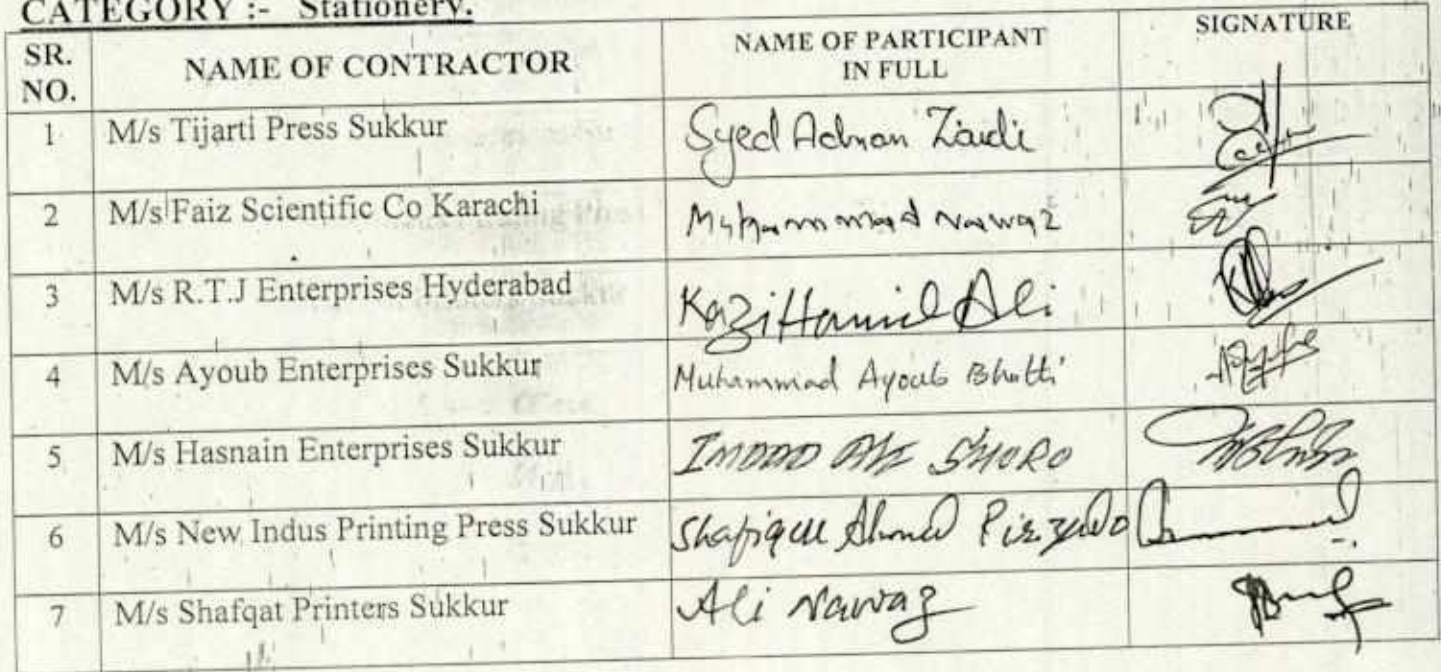 CATEGORY :- Stationery.
SR. NO. NAME OF CONTRACTOR NAME OF PARTICIPANT IN FULL SIGNATURE
1 M/s Tijarti Press Sukkur Syed Adnan Zaidi
2 M/s Faiz Scientific Co Karachi Muhammad Nawaz
3 M/s R.T.J Enterprises Hyderabad Kazi Hamid Ali
4 M/s Ayoub Enterprises Sukkur Muhammad Ayoub Bhatti
5 M/s Hasnain Enterprises Sukkur IMDAD ALI SHORO
6 M/s New Indus Printing Press Sukkur Shafique Ahmed Pirzado
7 M/s Shafqat Printers Sukkur Ali Nawaz